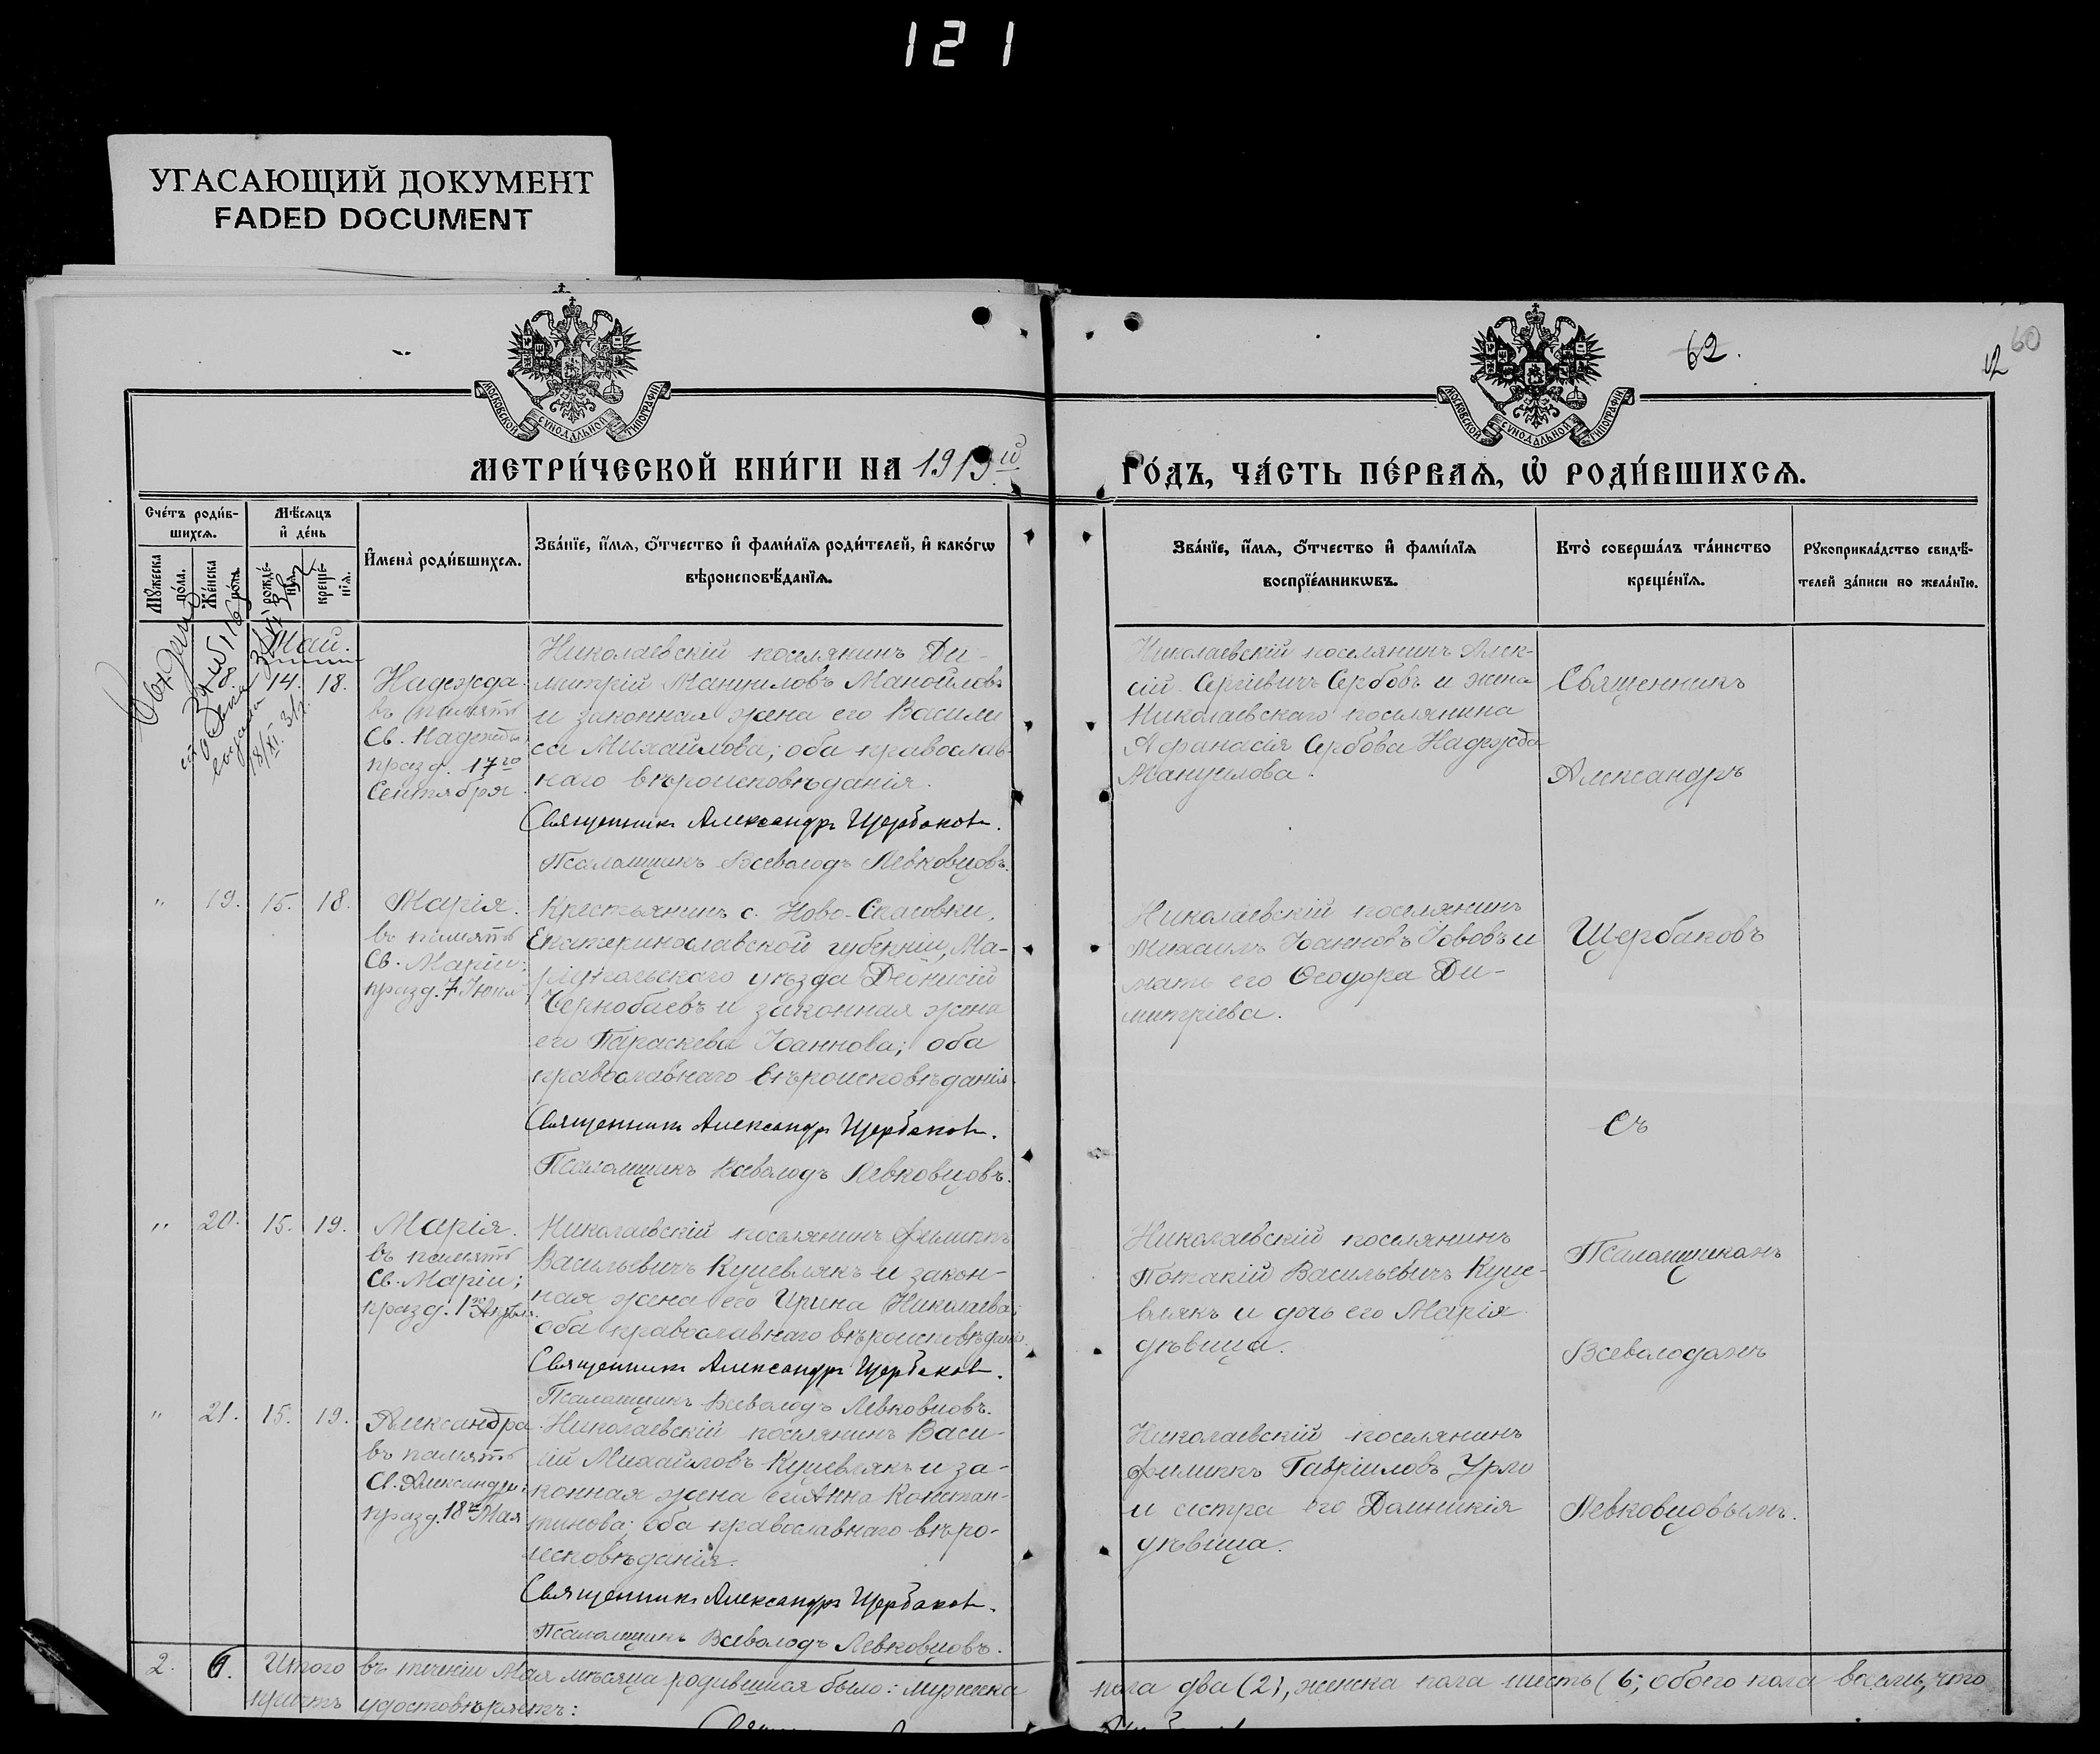 121
УГАСАЮЩИЙ ДОКУМЕНТ
FADED DOCUMENT
МОСКОВСКОЙ СУНОДАЛЬНОЙ ТИПОГРАФІИ
МОСКОВСКОЙ СУНОДАЛЬНОЙ ТИПОГРАФІИ
62.
60
МЕТРИ́ЧЕСКОЙ КНИ́ГИ НА 1913й
ГО́ДЪ, ЧА́СТЬ ПЕ́РВАѦ, Ѡ҆ РОДИ́ВШИХСѦ.
Сче́тъ роди́в-
шихсѧ.
Мꙋжеска
по́ла.
Же́нска
по́ла.
Мѣ́сѧцъ
и҆ де́нь
рожде́-
нїѧ.
креще́-
нїѧ.
И҆мена̀ роди́вшихсѧ.
Зва́нїе, и҆́мѧ, ѻ҆́тчество и҆ фами́лїѧ роди́телей, и҆ како́гѡ
вѣроисповѣ́данїѧ.
Зва́нїе, и҆́мѧ, ѻ҆́тчество и҆ фами́лїѧ
воспрїе́мникѡвъ.
Кто̀ соверша́лъ та́инство
креще́нїѧ.
Рꙋкоприкла́дство свидѣ́-
телей за́писи по жела́нїю.
Май.
18 14. 18.
Надежда
въ память
Св. Надежды
празд. 17го
Сентября
Николаевскій поселянинъ Ди-
митрій Мануиловъ Манойловъ
и законная жена его Васили
са Михайлова; оба православ-
наго вѣроисповѣданія.
Священникъ Александръ Щербаковъ.
Псаломщикъ Всеволодъ Левковцовъ.
Николаевскій поселянинъ Алек-
сій Сергіевичъ Сербовъ и жена
Николаевскаго поселянина
Афанасія Сербова Надежда
Мануилова.
Священникъ
Александръ
" 19. 15. 18.
Марія.
въ память
Св. Маріи;
празд. 7 Іюня
Крестьянинъ с. Ново-Спасовки,
Екатеринославской губерніи, Ма-
ріупольскаго уѣзда Діонисій
Чернобаевъ и законная жена
его Параскева Іоаннова; оба
православнаго вѣроисповѣданія.
Священникъ Александръ Щербаковъ.
Псаломщикъ Всеволодъ Левковцовъ.
Николаевскій поселянинъ
Михаилъ Іоанновъ Іововъ и
мать его Ѳеодора Ди-
митріева.
Щербаковъ
съ
" 20. 15. 19.
Марія.
въ память
Св. Маріи;
празд. 1го Апрѣля
Николаевскій поселянинъ Филиппъ
Васильевичъ Куцевлякъ и закон-
ная жена его Ирина Николаева;
оба православнаго вѣроисповѣданія.
Священникъ Александръ Щербаковъ.
Псаломщикъ Всеволодъ Левковцовъ.
Николаевскій поселянинъ
Потапій Васильевичъ Куце-
влякъ и дочь его Марія
дѣвица.
Псаломщикомъ
Всеволодомъ
" 21. 15. 19.
Александра
въ память
Св. Александры;
празд. 18го Мая
Николаевскій поселянинъ Васи-
лій Михайловъ Куцевлякъ и за-
конная жена его Анна Констан-
тинова; оба православнаго вѣро-
исповѣданія.
Священникъ Александръ Щербаковъ.
Псаломщикъ Всеволодъ Левковцовъ.
Николаевскій поселянинъ
Филиппъ Гавріиловъ Урло
и сестра его Домникія
дѣвица.
Левковцовымъ.
2. 6. Итого въ теченіи Мая мѣсяца родившихся было: мужеска
пола два (2), женска пола шесть (6; обоего пола восемь, что
причтъ удостовѣряетъ: